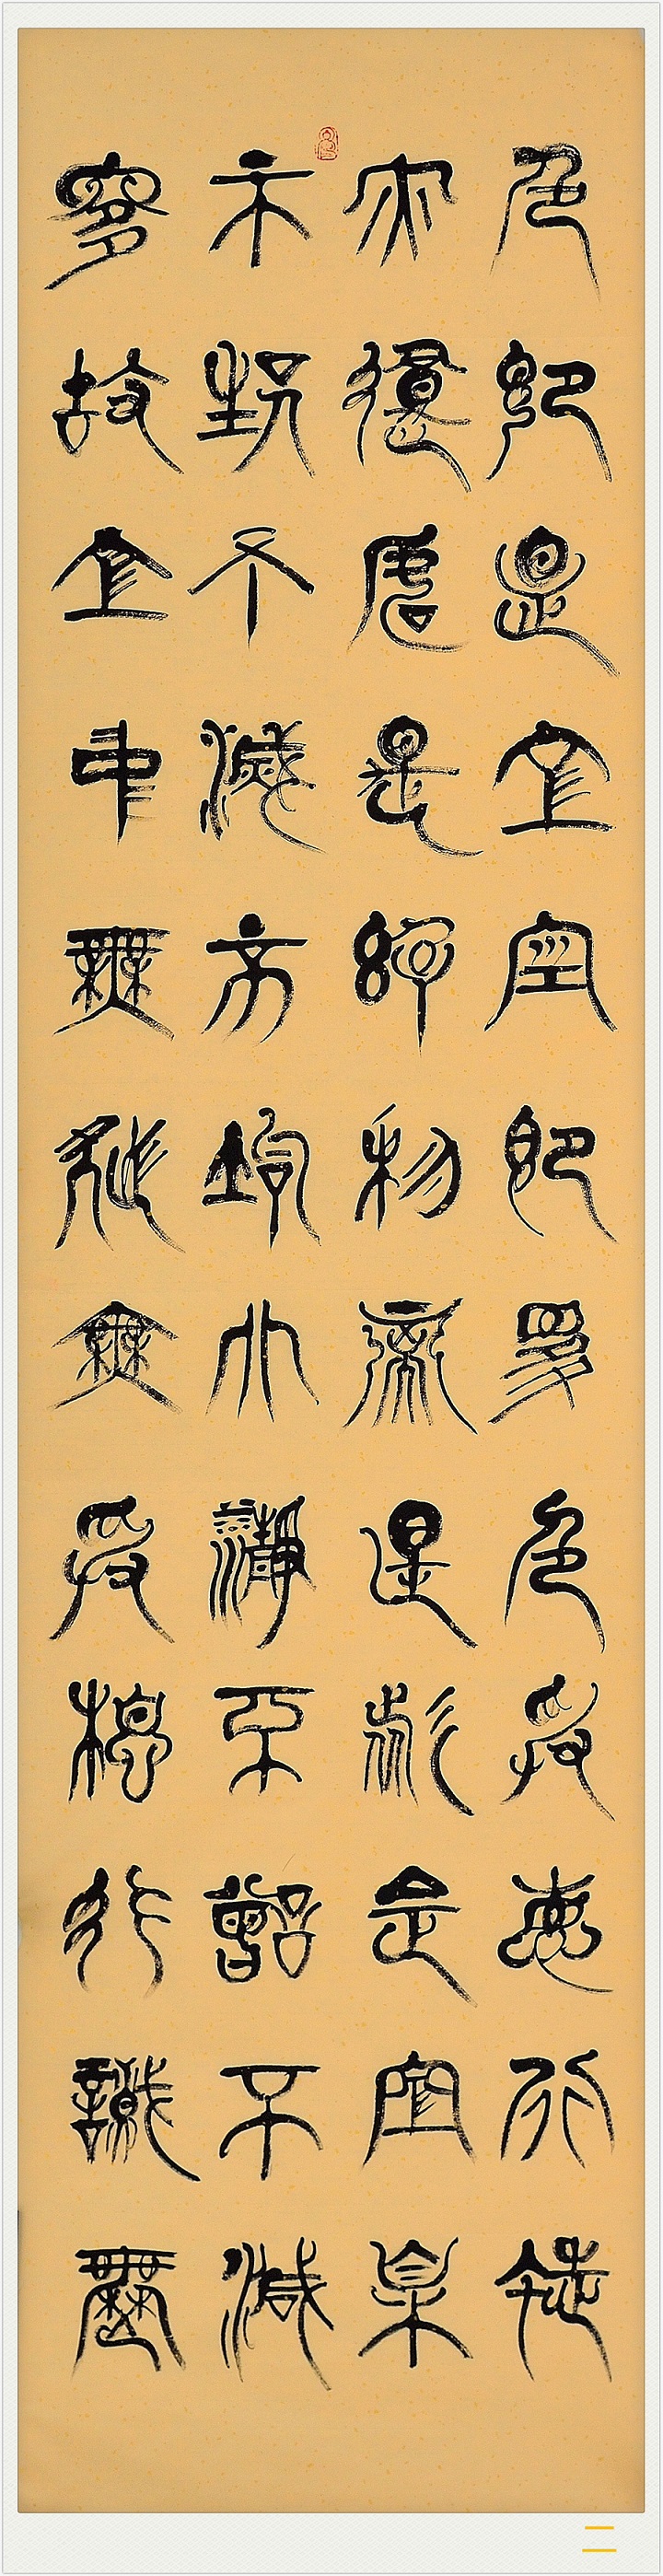 色即是空空即是色受想行識
亦復如是舍利子是諸法空相
不生不滅不垢不淨不增不減
是故空中無色無受想行識無
二